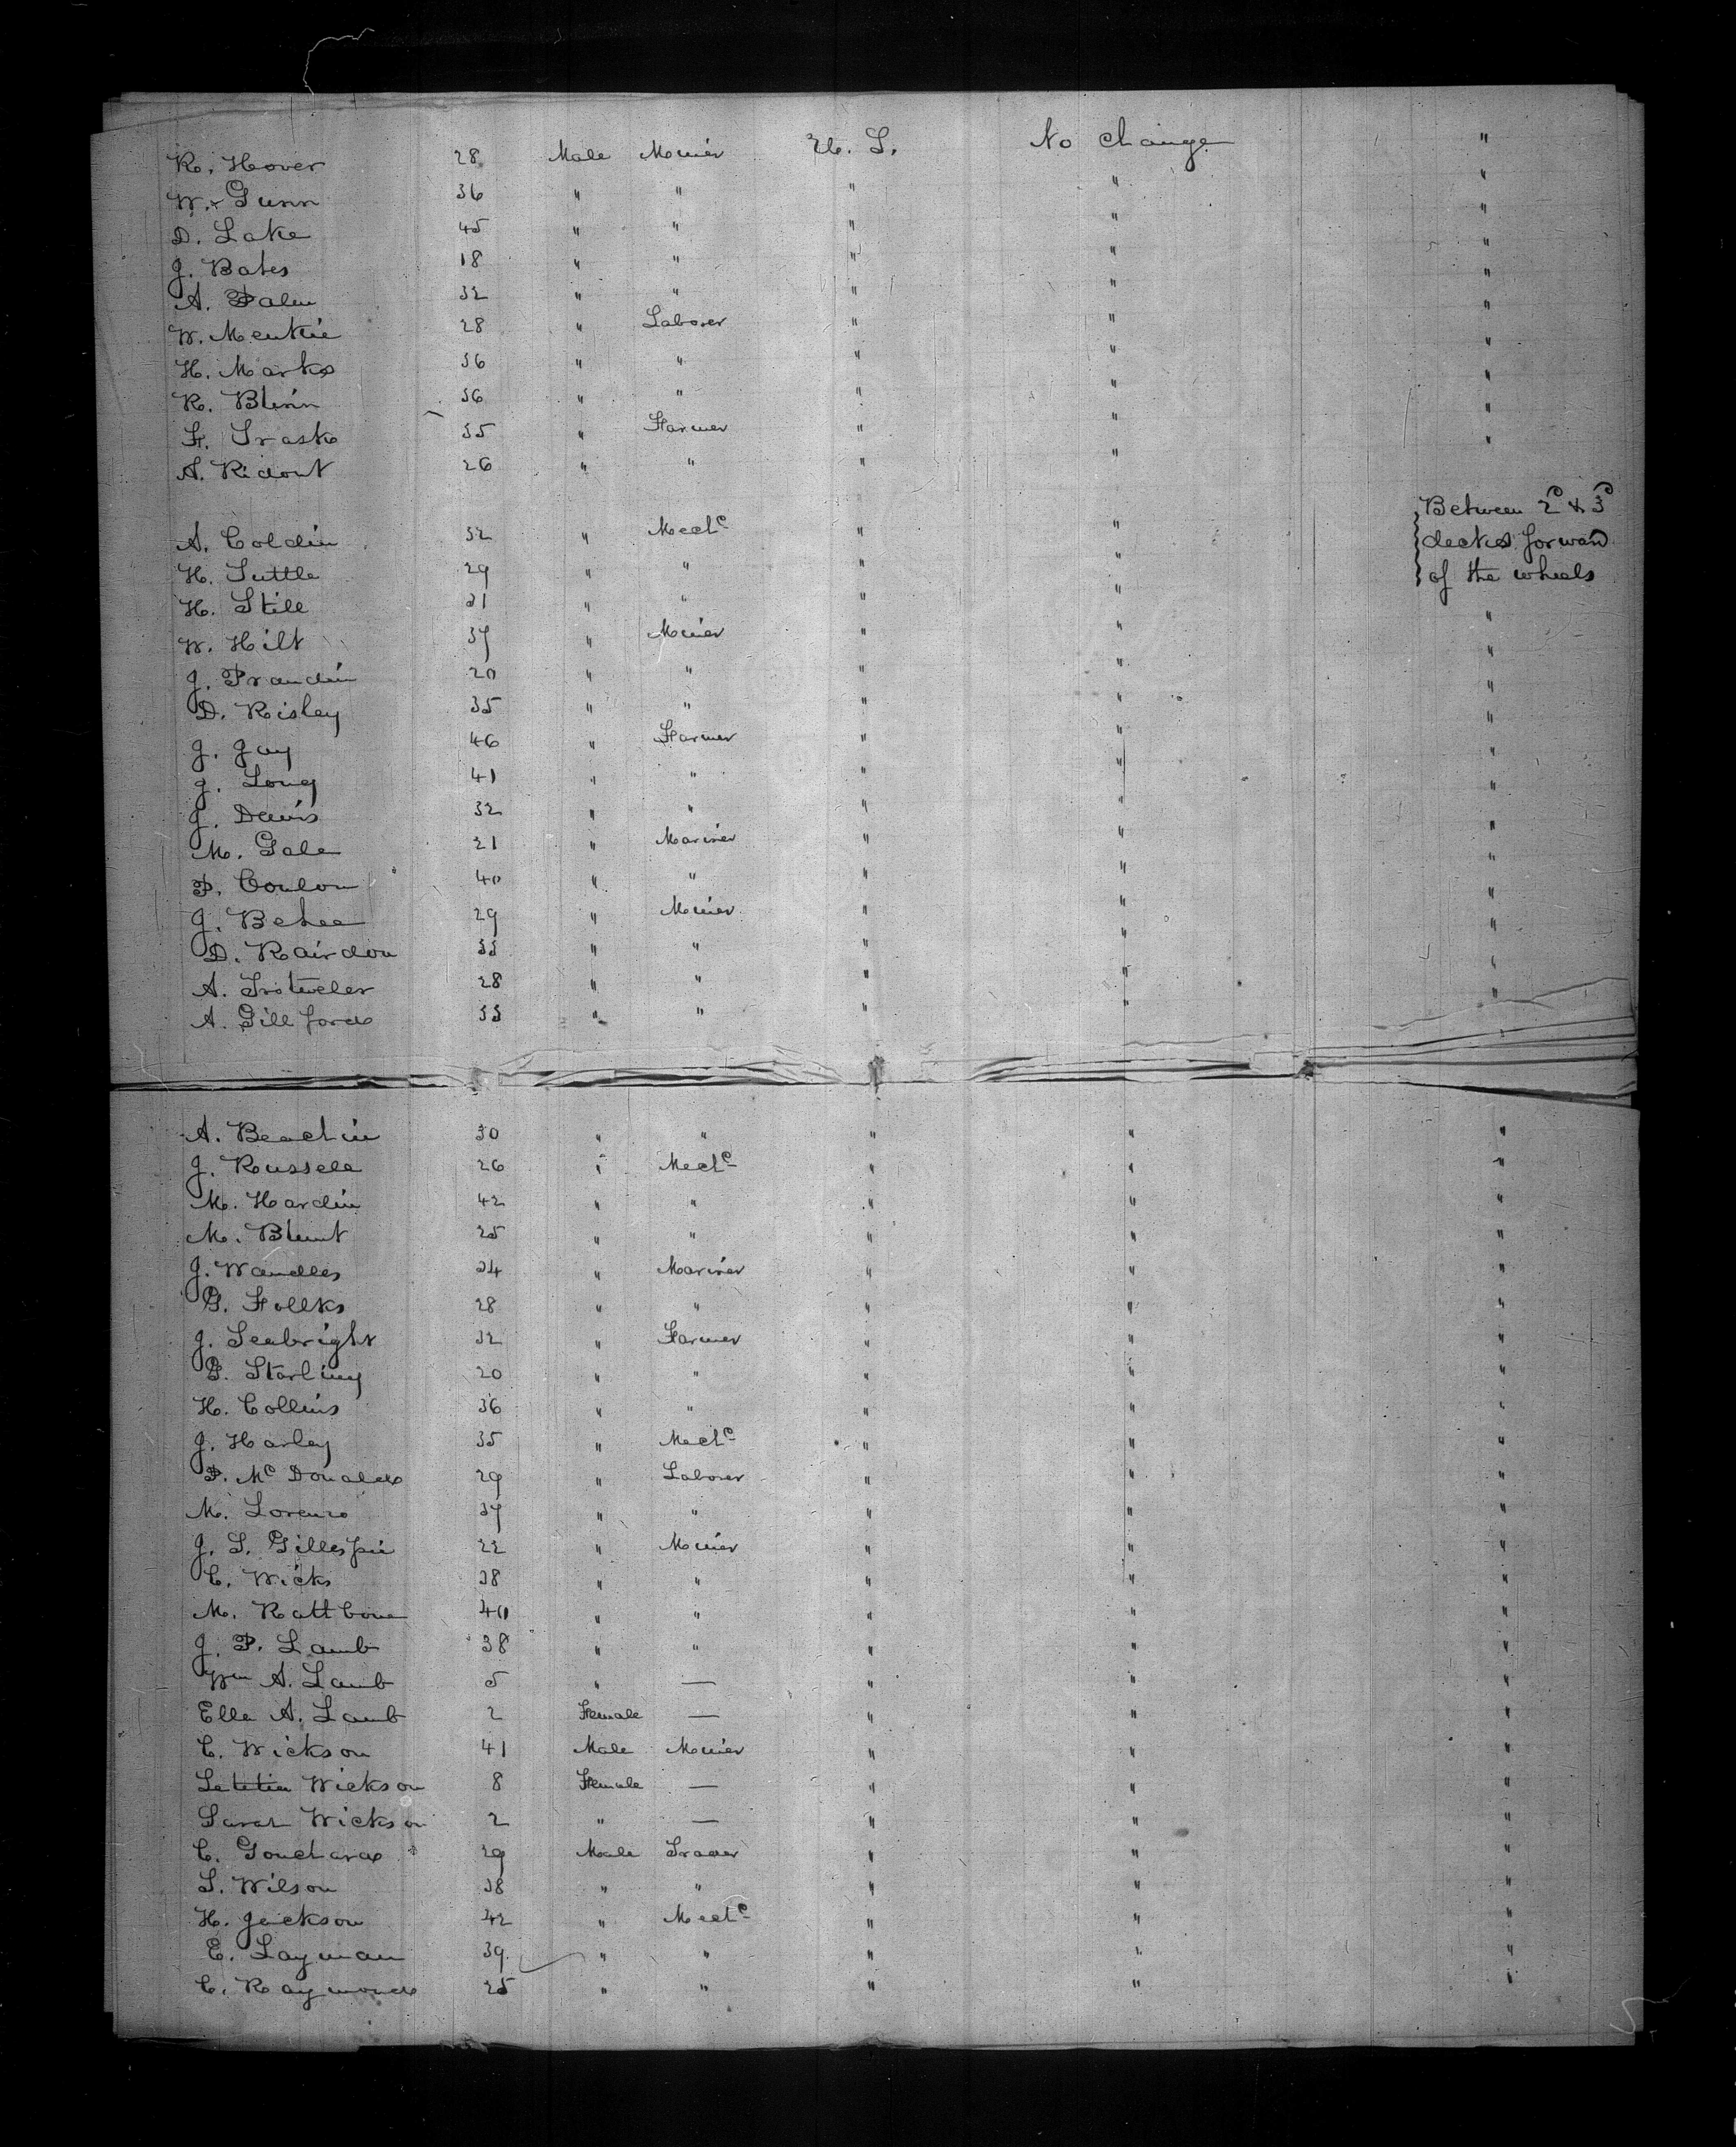 R. Hover 28 Male Minier U. S. No change "
W. Gunn 36 " " " " "
D. Lake 45 " " " " "
J. Bates 18 " " " " "
A. Palm 32 " " " " "
W. Menkie 28 " Laborer " " "
H. Marks 36 " " " " "
R. Blinn 36 " " " " "
F. Trask 35 " Farmer " " "
A. Ridout 26 " " " " "
Between 2d & 3d
A. Coldin 32 " Mechc " " decks forward
H. Tuttle 29 " " " " of the wheels
H. Still 21 " " " " "
W. Hilt 37 " Minier " " "
J. Prandin 20 " " " " "
D. Risley 35 " " " " "
J. Gay 46 " Farmer " " "
J. Long 41 " " " " "
J. Davis 32 " " " " "
M. Gale 21 " Mariner " " "
P. Coulon 40 " " " " "
J. Behee 29 " Minier " " "
D. Rairdon 33 " " " " "
A. Trotweler 28 " " " " "
A. Gillford 33 " " " " "
A. Beachin 30 " " " " "
J. Roussele 26 " Mechc " " "
M. Hardin 42 " " " " "
M. Blunt 25 " " " " "
J. Wandles 24 " Mariner " " "
G. Follks 28 " " " " "
J. Seabright 32 " Farmer " " "
G. Starling 20 " " " " "
H. Collins 36 " " " " "
J. Harley 35 " Mechc " " "
P. Mc Donald 29 " Laborer " " "
M. Lorenzo 37 " " " " "
J. S. Gillespie 22 " Minier " " "
C. Wicks 38 " " " " "
M. Rattbone 40 " " " " "
J. P. Lamb 38 " " " " "
Wm A. Lamb 5 " — " " "
Ella A. Lamb 2 Female — " " "
C. Wickson 41 Male Minier " " "
Letitia Wickson 8 Female — " " "
Sarah Wickson 2 " — " " "
C. Gouchard 29 Male Trader " " "
S. Wilson 38 " " " " "
H. Jackson 42 " Mechc " " "
E. Layman 39 " " " " "
C. Raymond 25 " " " " "